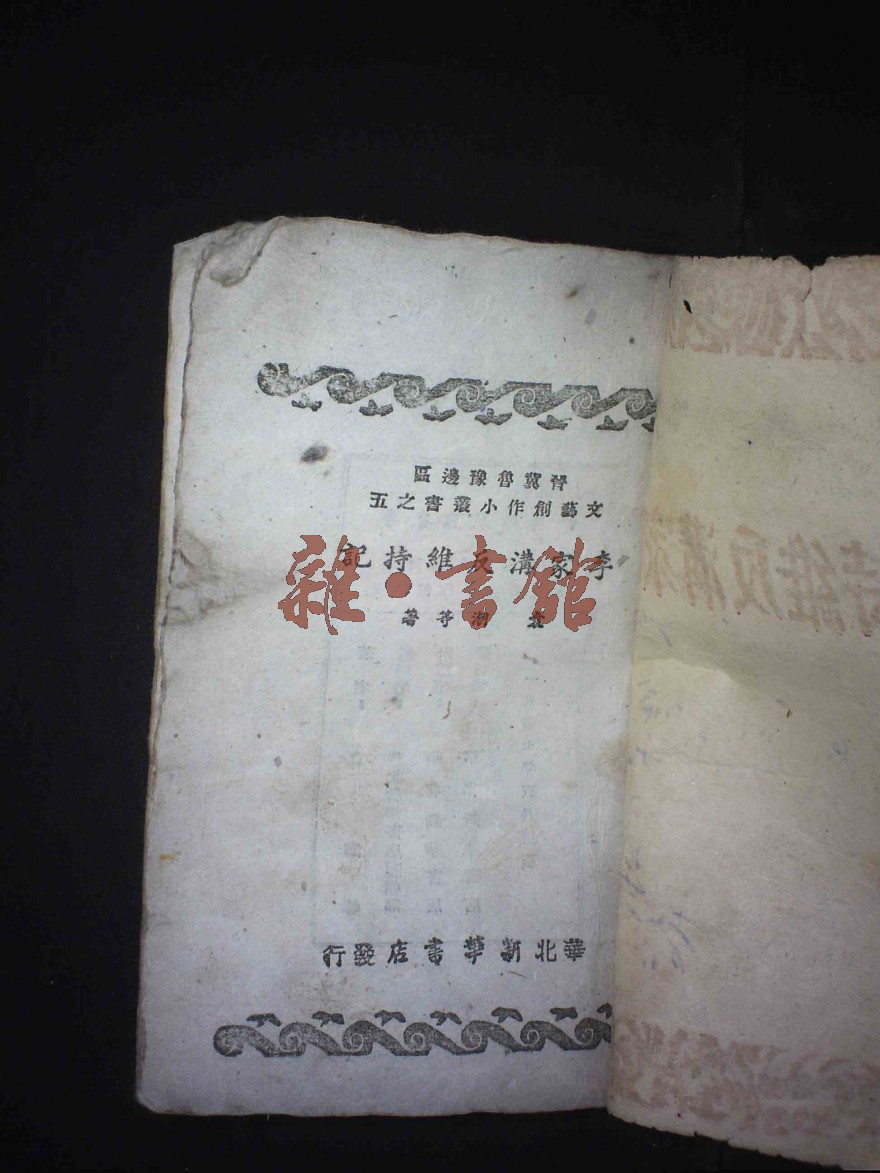 晉冀魯豫邊區
文藝創作小叢書之五
李家溝反維持記
等著
華北新華書店發行
雜·書館